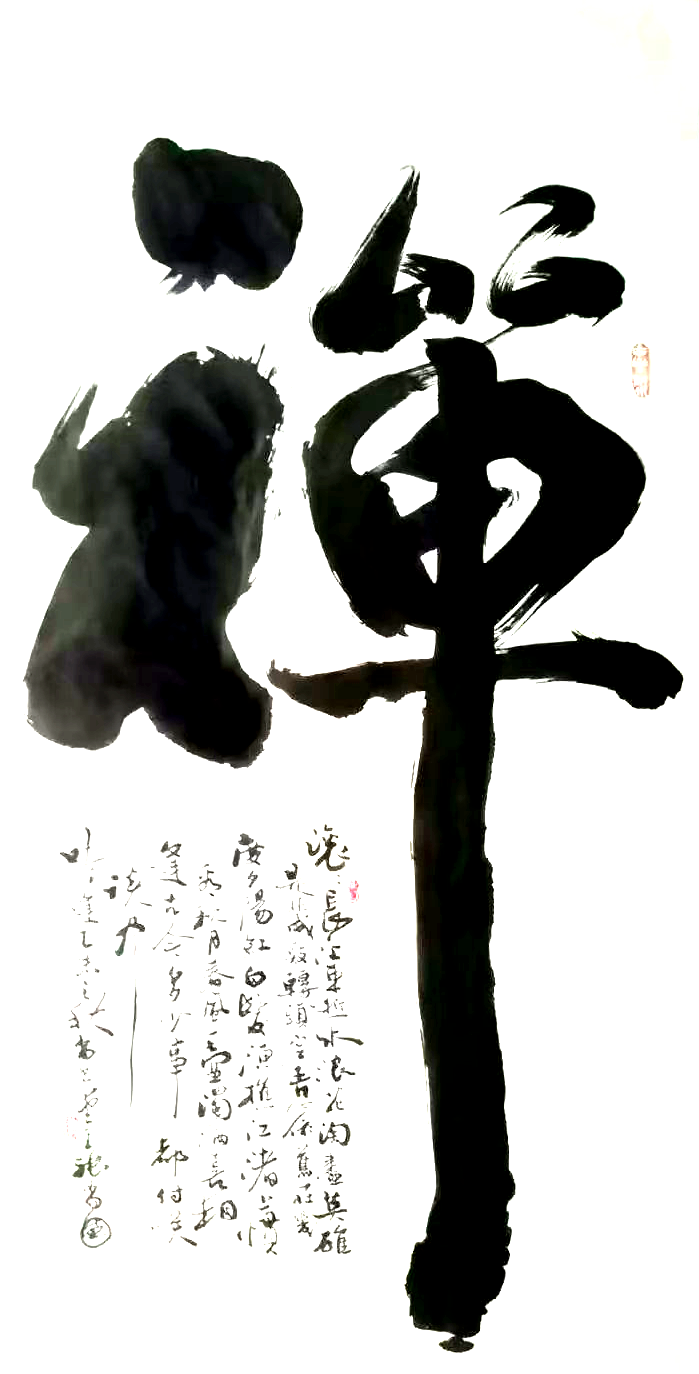 禪
滚滚長江東逝水浪花淘盡英雄
是非成敗轉頭空青山依舊在幾
度夕陽紅白髮漁樵江渚上慣
看秋月春風一壺濁酒喜相
逢古今多少事都付笑
談中
時逢乙未之秋